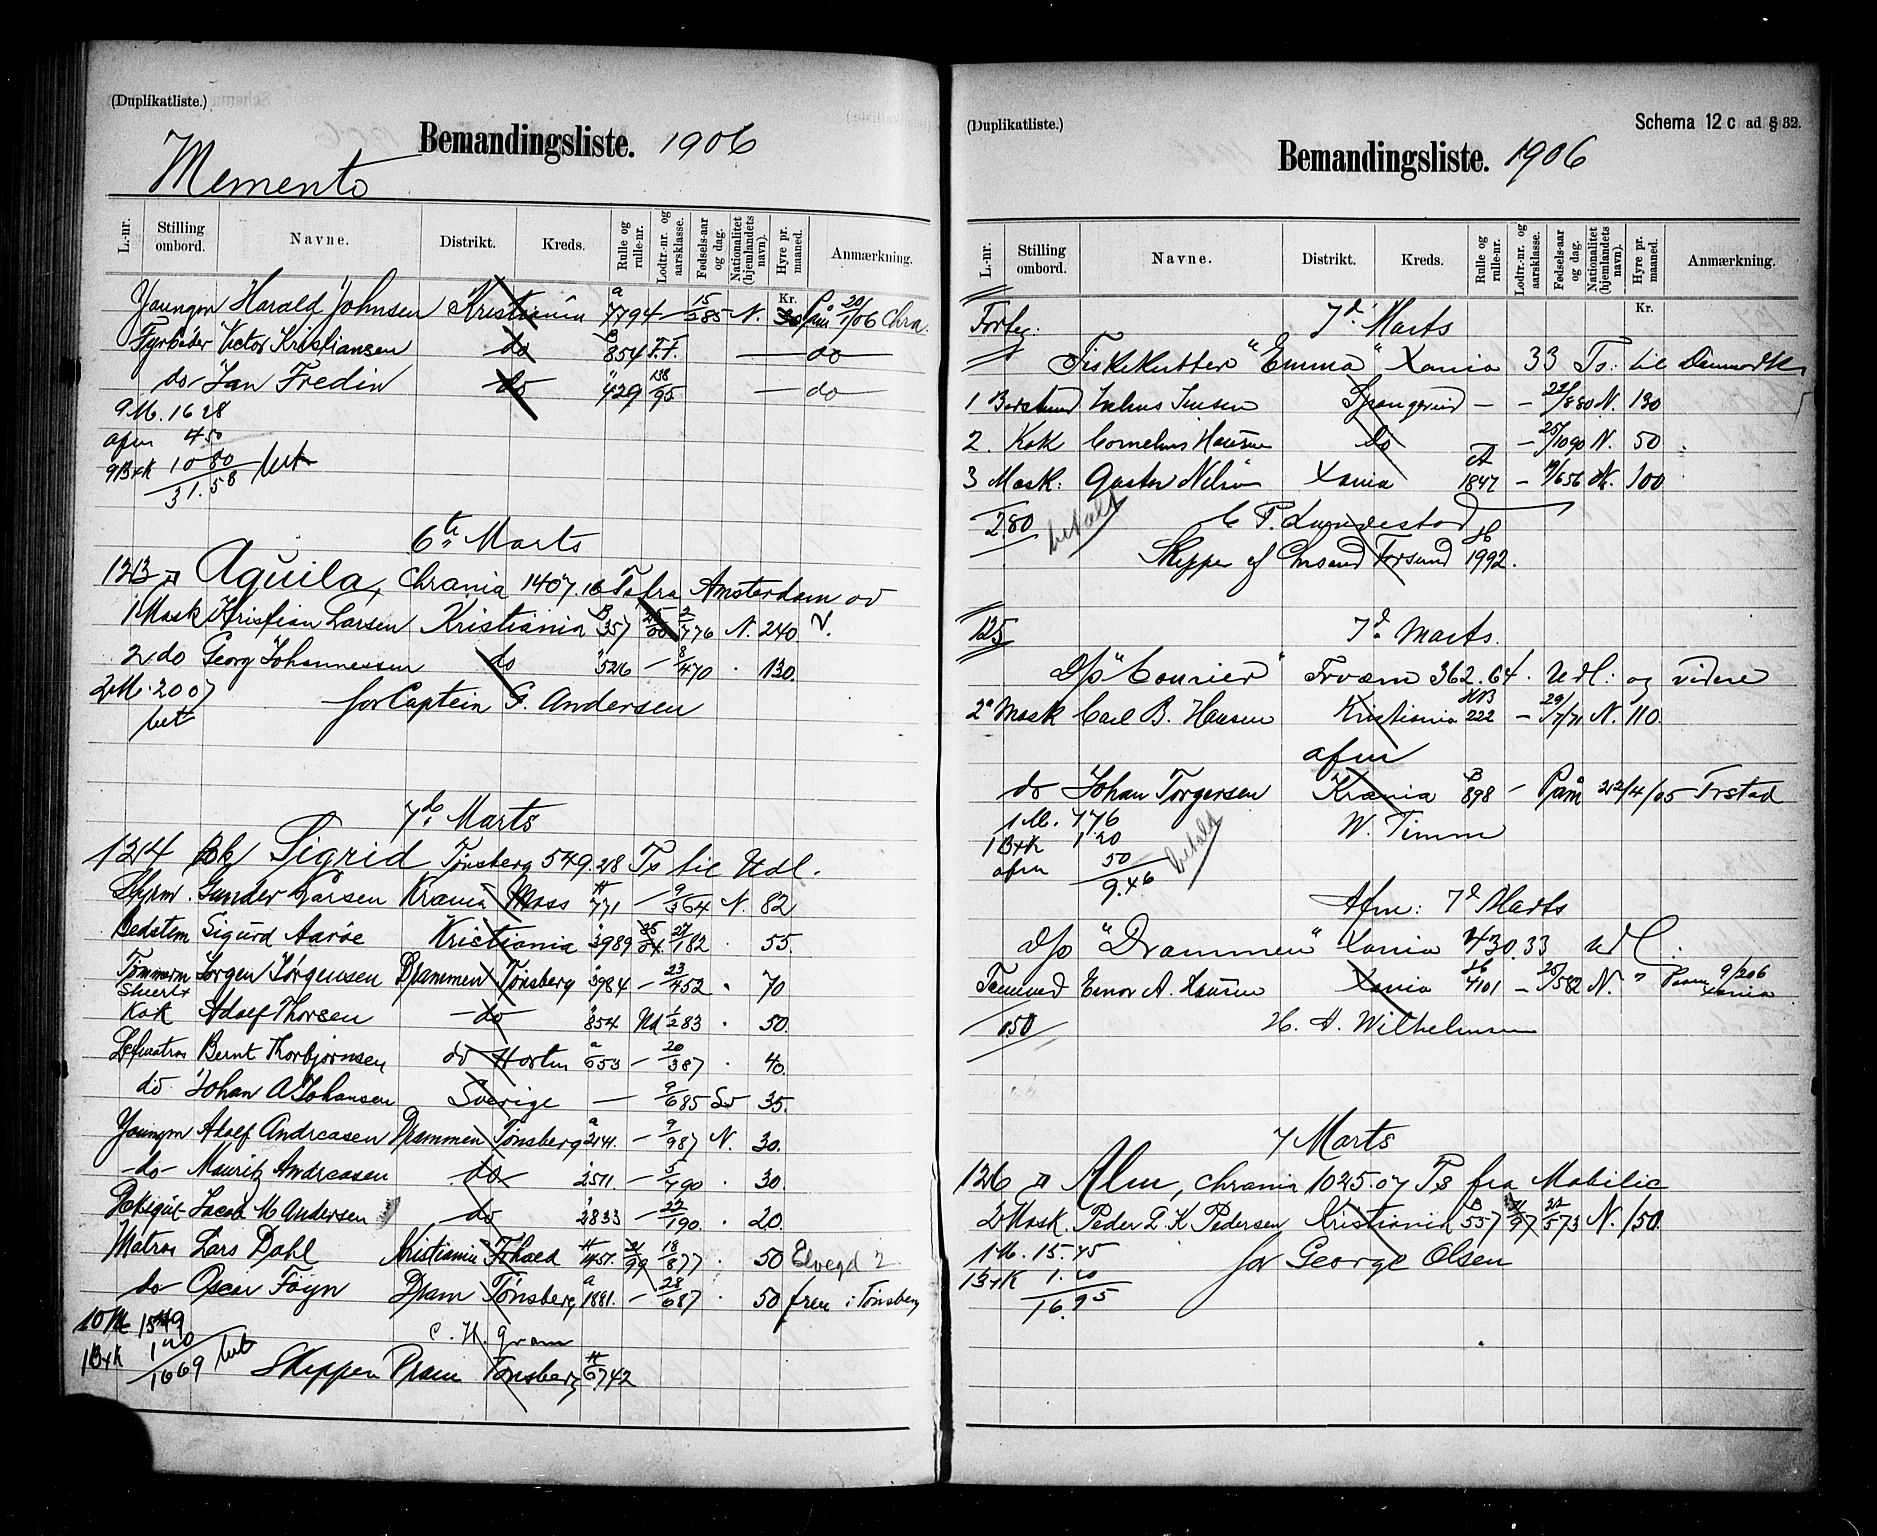 (Duplikatliste.)
Bemandingsliste. 1906
Memento
L.-nr. Stilling ombord. Navne. Distrikt. Kreds. Rulle og rulle-nr. Lodtr.-nr. og aarsklasse. Fødsels-aar og dag. Nationalitet (hjemlandets navn). Hyre pr. maaned. Anmærkning.
Kr.
Youngm Harald Johnsen Kristiania a 7794 — 15/285 N. 20/1/06 Chra.
Fyrbøder Victor Kristiansen do B 854 F.F. — do —
do Jan Fredin do " 429 138/95 — do —
9 M. 16 28
afm 4 50
9 B+K 10 80 bet
31.58
6te Marts
123 Aquila, Chrania 1407.16 Ts fra Amsterdam
1 Mask Kristian Larsen Kristiania B 357 2/776 N. 240
2 do Georg Johannessen do " 526 — 8/470 . 130.
2 M. 20 07
bet
for Captein G. Andersen
7de Marts
124 Bk Sigrid Tønsberg 549.28 Ts til Udl.
Styrm. Gunder Larsen Krania Moss H 771 — 9/364 N. 82
Bedstem Sigurd Aarøe Kristiania " 3989 27/182 . 55.
Tømmerm Jørgen Jørgensen Drammen Tønsberg " 3984 — 23/452 . 70
Stuert+
Kok Adolf Thorsen — do — " 854 Ud 1/283 . 50.
Letmatros Bernt Thorbjørnsen do Horten a 653 — 20/387 . 40.
do Johan A Johansen Sverige — 9/685 Sv 35.
Youngm Adolf Andreasen Drammen Tønsberg a 2141. — 9/987 N. 30.
— do — Mauritz Andreasen do " 2511. — 5/790 . 30.
Dæksgut Jacob M Andersen — do " 2833 — 22/190. . 20.
Matros Lars Dahl Kristiania H 1451. 21/99 18/877 . 50 Elvegd 2
do Oscar Føyn Dram Tønsberg a 1881. — 28/687 . 50 frem i Tønsberg
10 M 15 49
1 B+K 1 20 bet
16 69
C. H. Gram
Skipper Dram Tønsberg H 6742
(Duplikatliste.)
Schema 12 c ad § 32.
Bemandingsliste. 1906
L.-nr. Stilling ombord. Navne. Distrikt. Kreds. Rulle og rulle-nr. Lodtr.-nr. og aarsklasse. Fødsels-aar og dag. Nationalitet (hjemlandets navn). Hyre pr. maaned. Anmærkning.
Kr.
Forbg: 7d Marts
Fiskekutter "Emma" Xania 33 Ts. til Danmark
1 Bestmd Julius Jensen Spangereid — — 22/880 N. 130
2. Kok Cornelius Hansen do — 25/1090 N. 50
3 Mask: Gustav Nelson Xania A 1847 — 100
2.80 betalt C. P. Lundestad
Skipper af Chrsand Forsund H 1992.
125 7de Marts.
D/s "Courier" Trvæm 362.64. Udl: og videre
2n Mask Carl B. Hansen Kristiania 222 — 29/7/71 N. 110.
afm
do Johan Torgersen Krania B 898 — Paam 22/4/05 Frstad
1 M. 7.76
1 B+K 1.20
afm 50 betalt
9.46
W. Timm
Afm: 7d Marts
D/s "Drammen" Xania 430.33 Udl.
Einar A. Hansen Xania H 4101 — 25/582 N. " Paam 9/206 Xania
050
H. A. Wilhelmsen
7 Marts
126 Alm, Chrania 1025.07 Ts fra Mobilie
2 Mask. Peder L. K. Pedersen Kristiania B 557 22/573 N. 150.
1 M. 15.75
1 B+K 1.20
16.95
for George Olsen